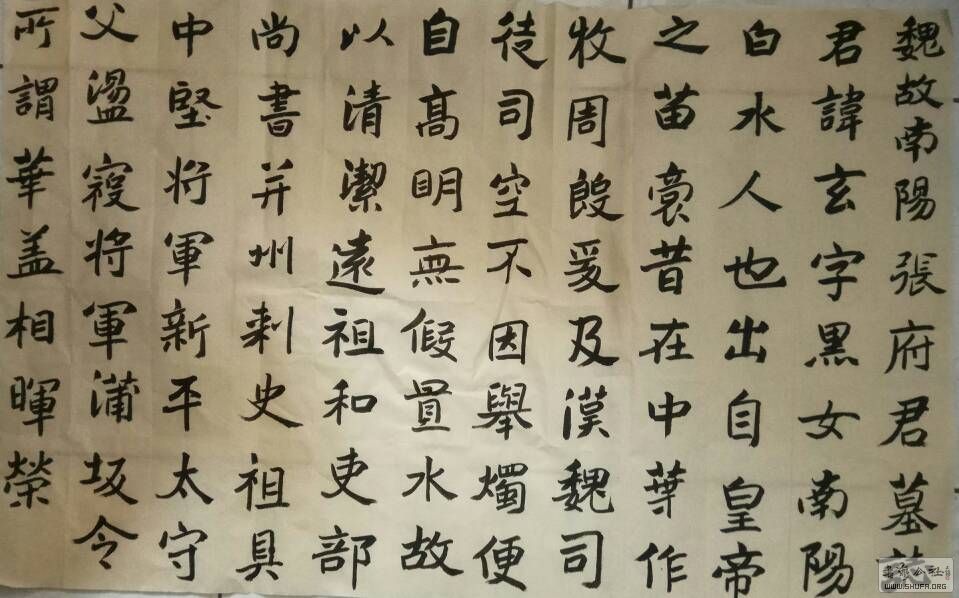 魏故南陽張府君墓
君諱玄字黑女南陽
白水人也出自皇帝
之苗裔昔在中葉作
牧周殷爰及漢魏司
徒司空不因舉燭便
自高明無假置水故
以清潔遠祖和吏部
尚書并州刾史祖具
中堅将軍新平太守
父盪寇將軍蒲坂令
所謂華盖相暉榮
书法公社
WWW.SHUFA.ORG